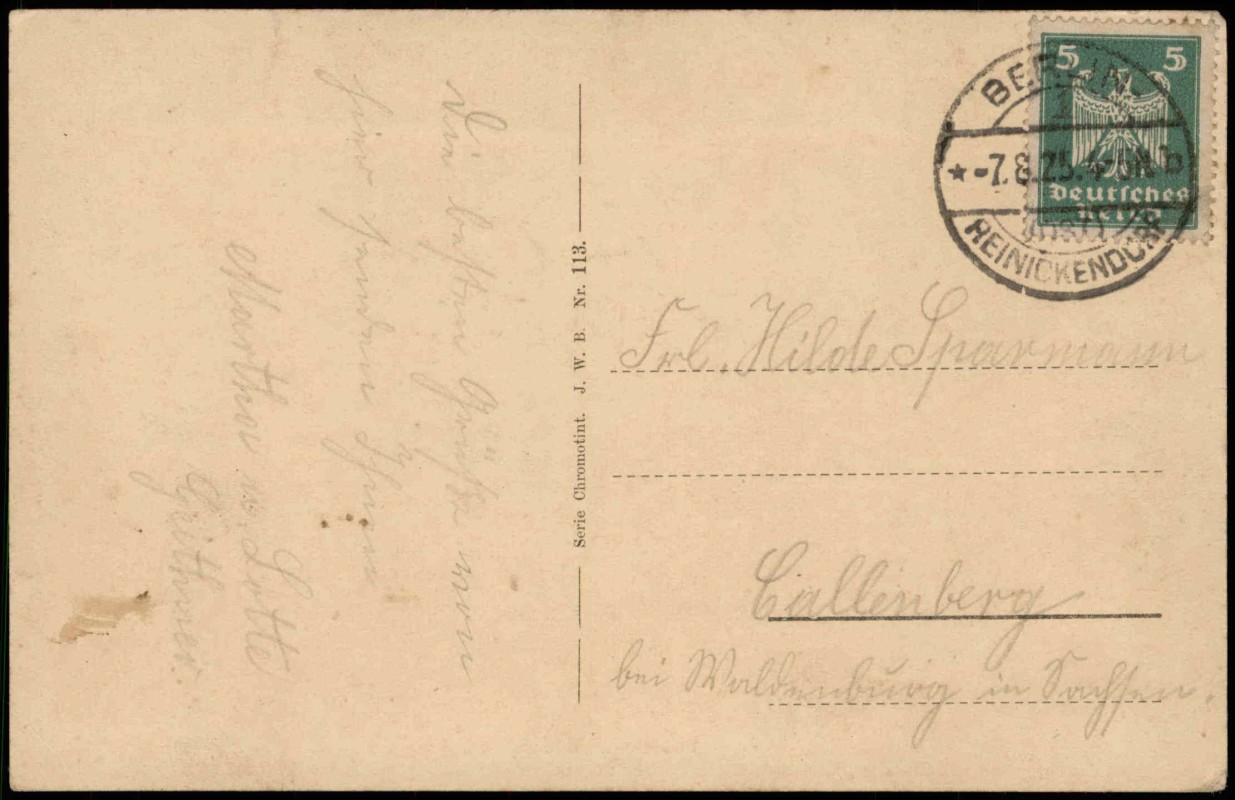 Die besten Grüße von
hier senden Ihnen
Martha u. Lotte
Serie Chromotint. J. W. B. Nr. 113.
5 5
Deutsches
Reich
BERLIN
* -7.8.25. 4-5N b
REINICKENDORF
Frl. Hilde Sparmann
Callenberg
bei Waldenburg in Sachsen.